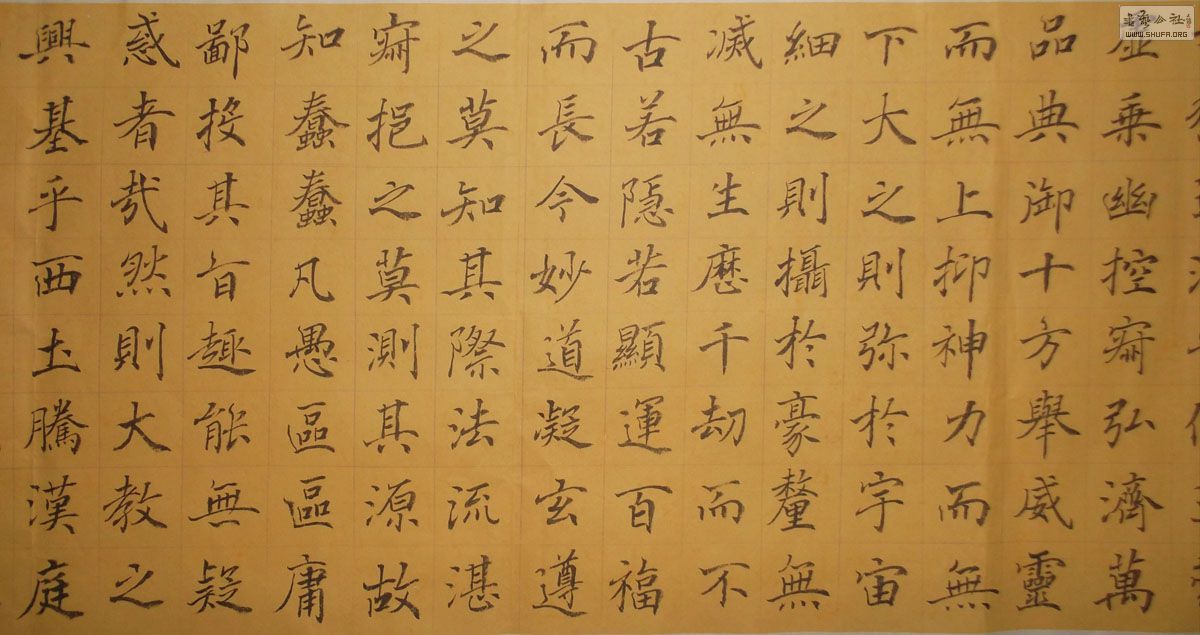 虛乘幽控寂弘濟萬
品典御十方舉威靈
而無上抑神力而無
下大之則弥於宇宙
細之則攝於豪釐無
滅無生歷千劫而不
古若隱若顯運百福
而長今妙道凝玄遵
之莫知其際法流湛
寂挹之莫測其源故
知蠢蠢凡愚區區庸
鄙投其旨趣能無疑
惑者哉然則大教之
興基乎西土騰漢庭
WWW.SHUFA.ORG